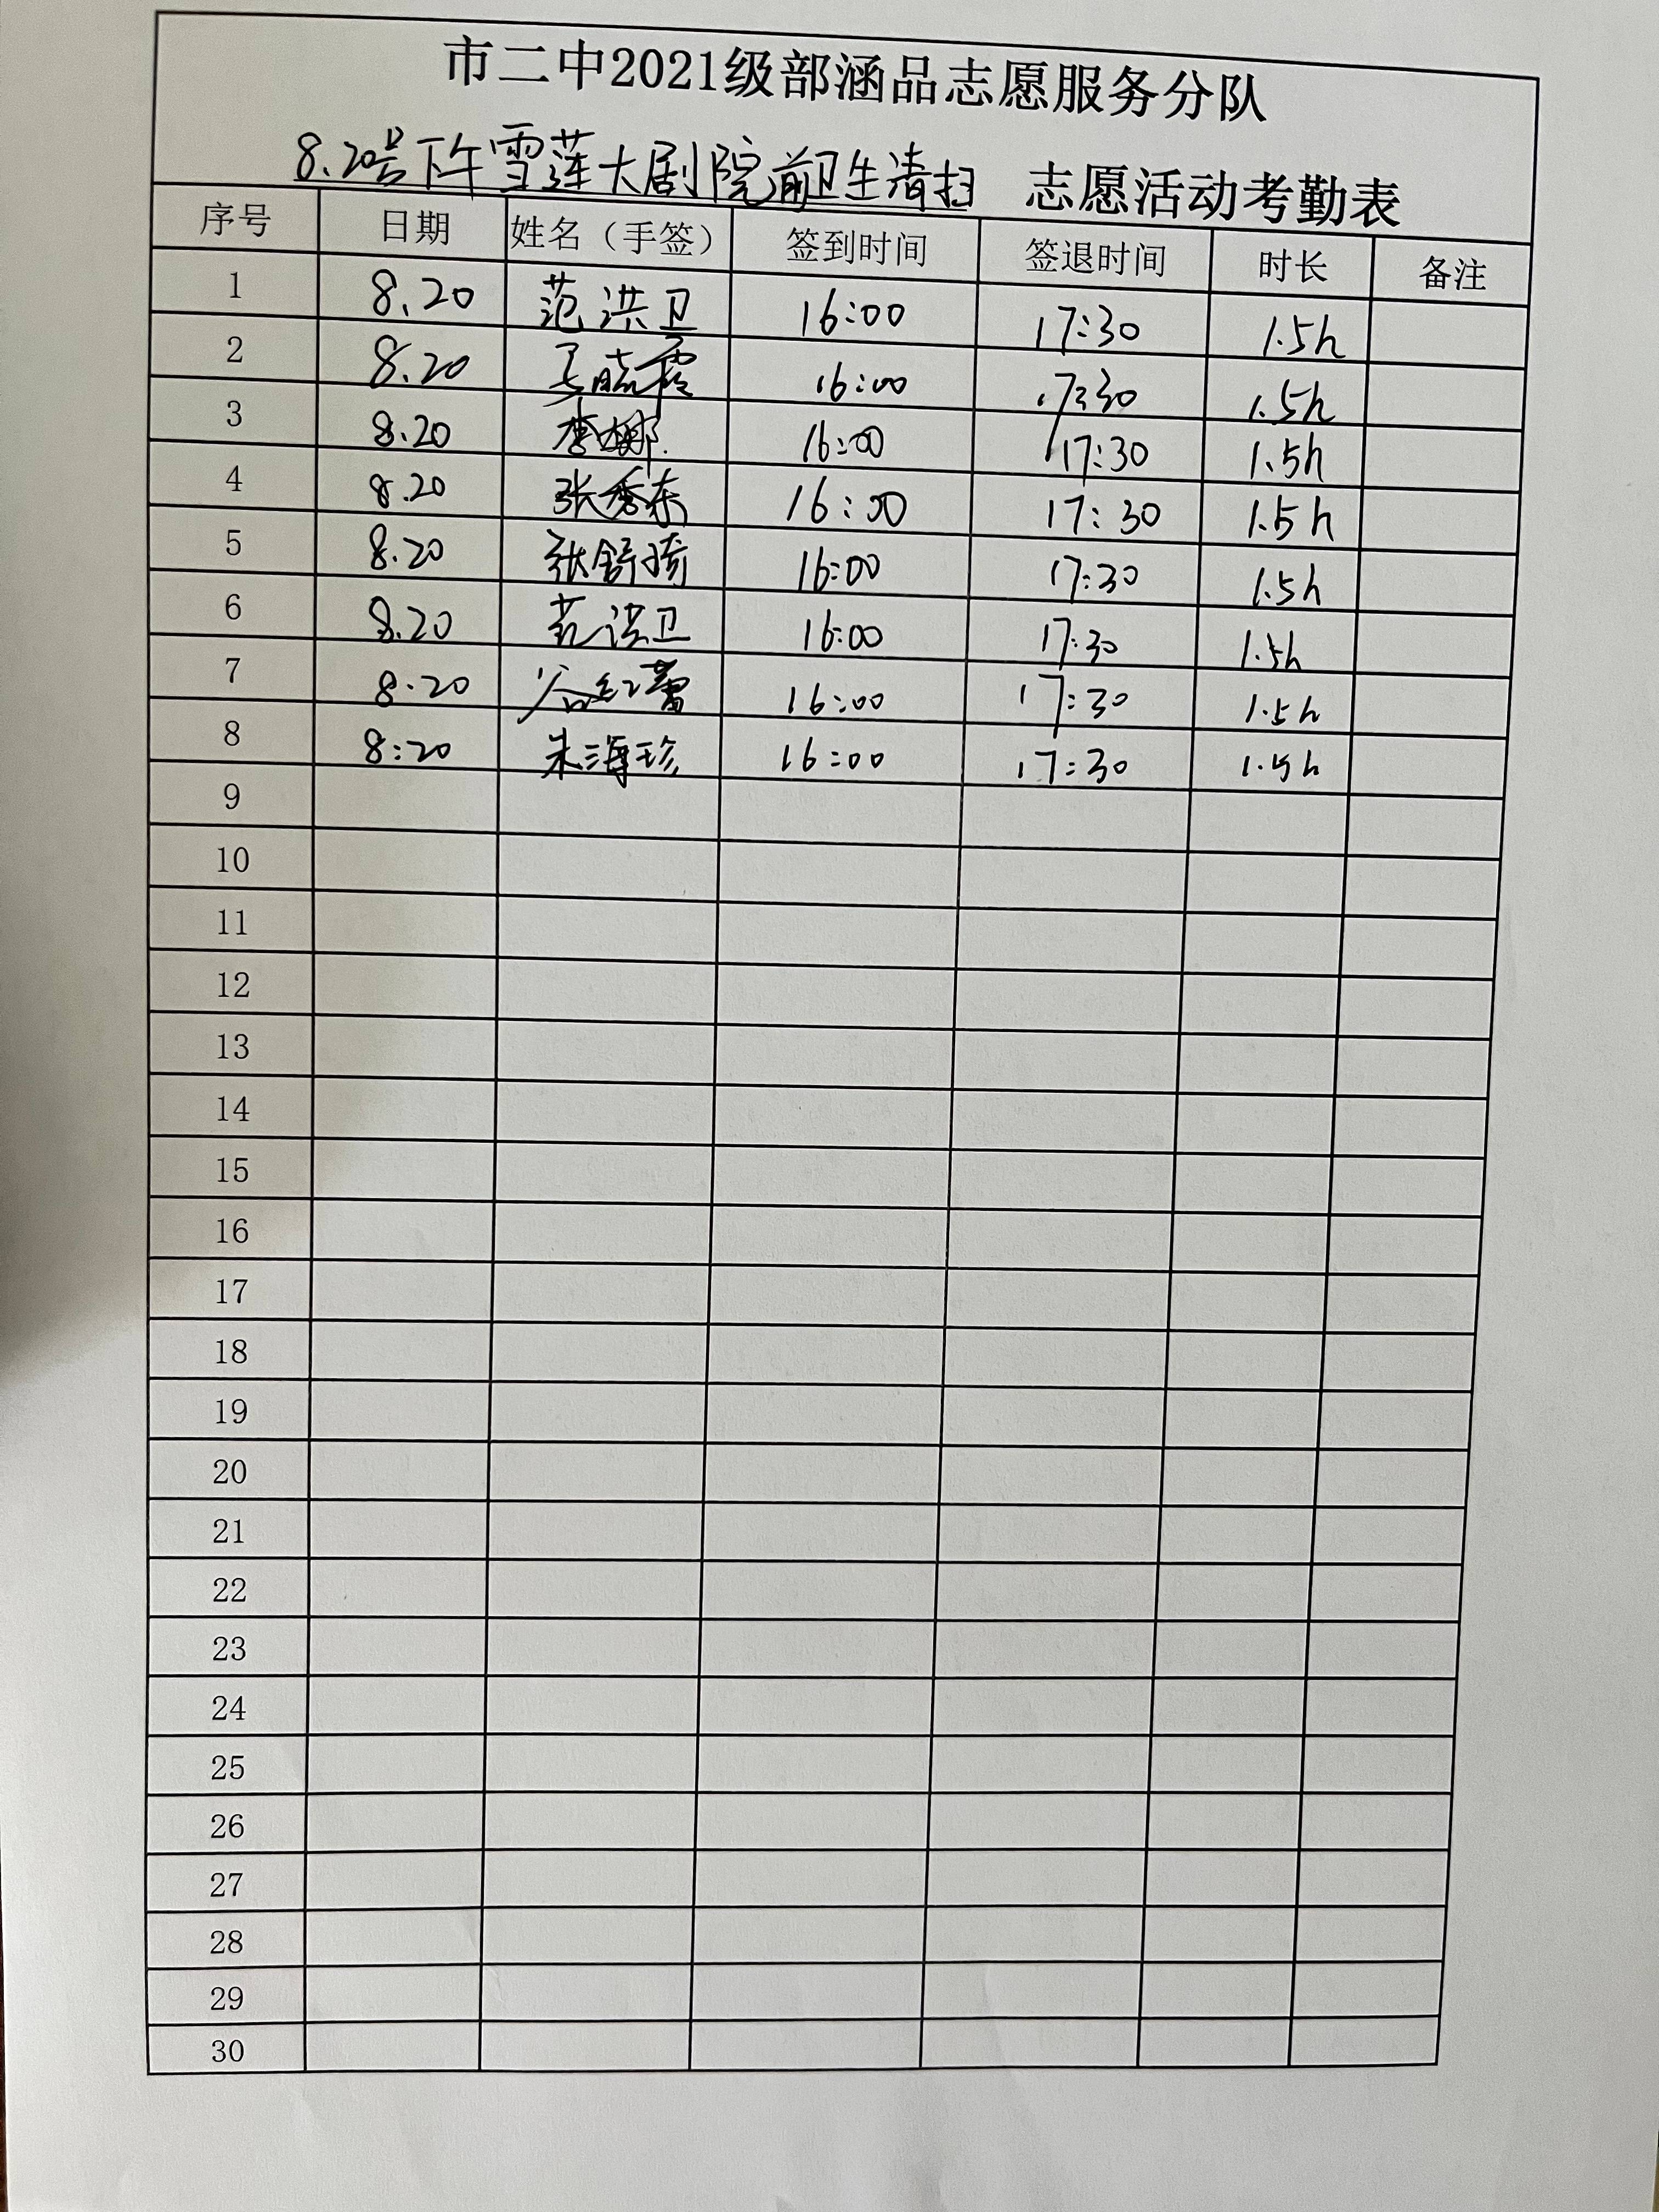 市二中2021级部涵品志愿服务分队
8.20号下午雪莲大剧院前卫生清扫 志愿活动考勤表
序号 日期 姓名（手签） 签到时间 签退时间 时长 备注
1 8.20 范洪卫 16:00 17:30 1.5h
2 8.20 16:00 17:30 1.5h
3 8.20 李娜 16:00 17:30 1.5h
4 8.20 张秀东 16:00 17:30 1.5h
5 8.20 张舒琦 16:00 17:30 1.5h
6 8.20 范洪卫 16:00 17:30 1.5h
7 8.20 谷红蕾 16:00 17:30 1.5h
8 8:20 朱海珍 16:00 17:30 1.5h
9
10
11
12
13
14
15
16
17
18
19
20
21
22
23
24
25
26
27
28
29
30